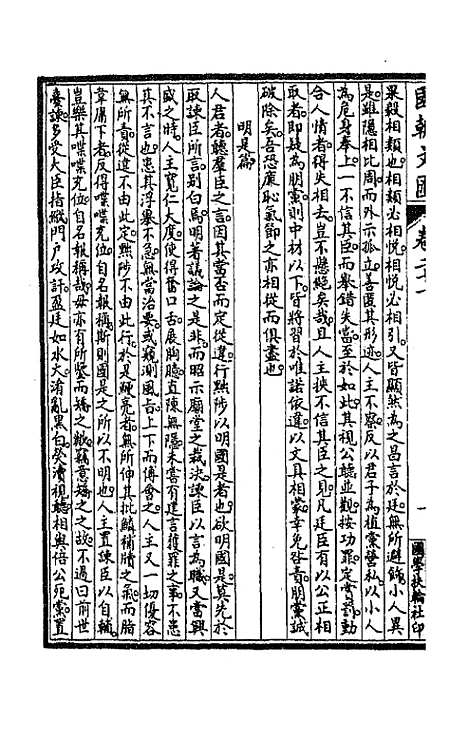 國朝文匯 卷二十一
國學扶輪社印
眾殺相類也相類必相悅相悅必相引又皆顯然為之昌言於廷無所避飾小人異
是雖隱相比周而外示孤立善匿其形迹人主不察反以君子為植黨營私以小人
為危身奉上一不信其臣而舉錯失當至於如此其視公聽並觀按功罪定賞罰動
合人情者得失相去豈不懸絕矣哉且人主挾不信其臣之見凡廷臣有以公正相
取者即疑為朋黨則中材以下皆將習於唯諾依違以文具相蒙幸免咎責朋黨誠
破除矣吾恐廉恥氣節之亦相從而俱盡也
明是篇
人君者聽羣臣之言因其當否而定從違行黜陟以明國是者也欲明國是莫先於
取諫臣所言別白焉明著議論之是非而昭示廟堂之裁決諫臣以言為職又當興
盛之時人主寬仁大度使得奮口舌展胸臆直陳無隱未嘗有建言獲罪之事不患
其不言也患其浮舉不急無當治要或窺測風旨上下而傅會之人主又一切優容
無所責從違不由此定黜陟不由此行於是鯁亮者無所伸其批鱗補牘之氣而脂
韋庸下者反得喋喋充位自名報稱斯則國是之所以不明也人主置諫臣以自輔
豈樂其喋喋充位自名報稱哉毋亦有所鑒而矯之歟竊意矯之之故不過曰前世
臺諫多受大臣指縱門戶攻訐盈廷如水火淆亂黑白熒瀆視聽相與倍公死黨置